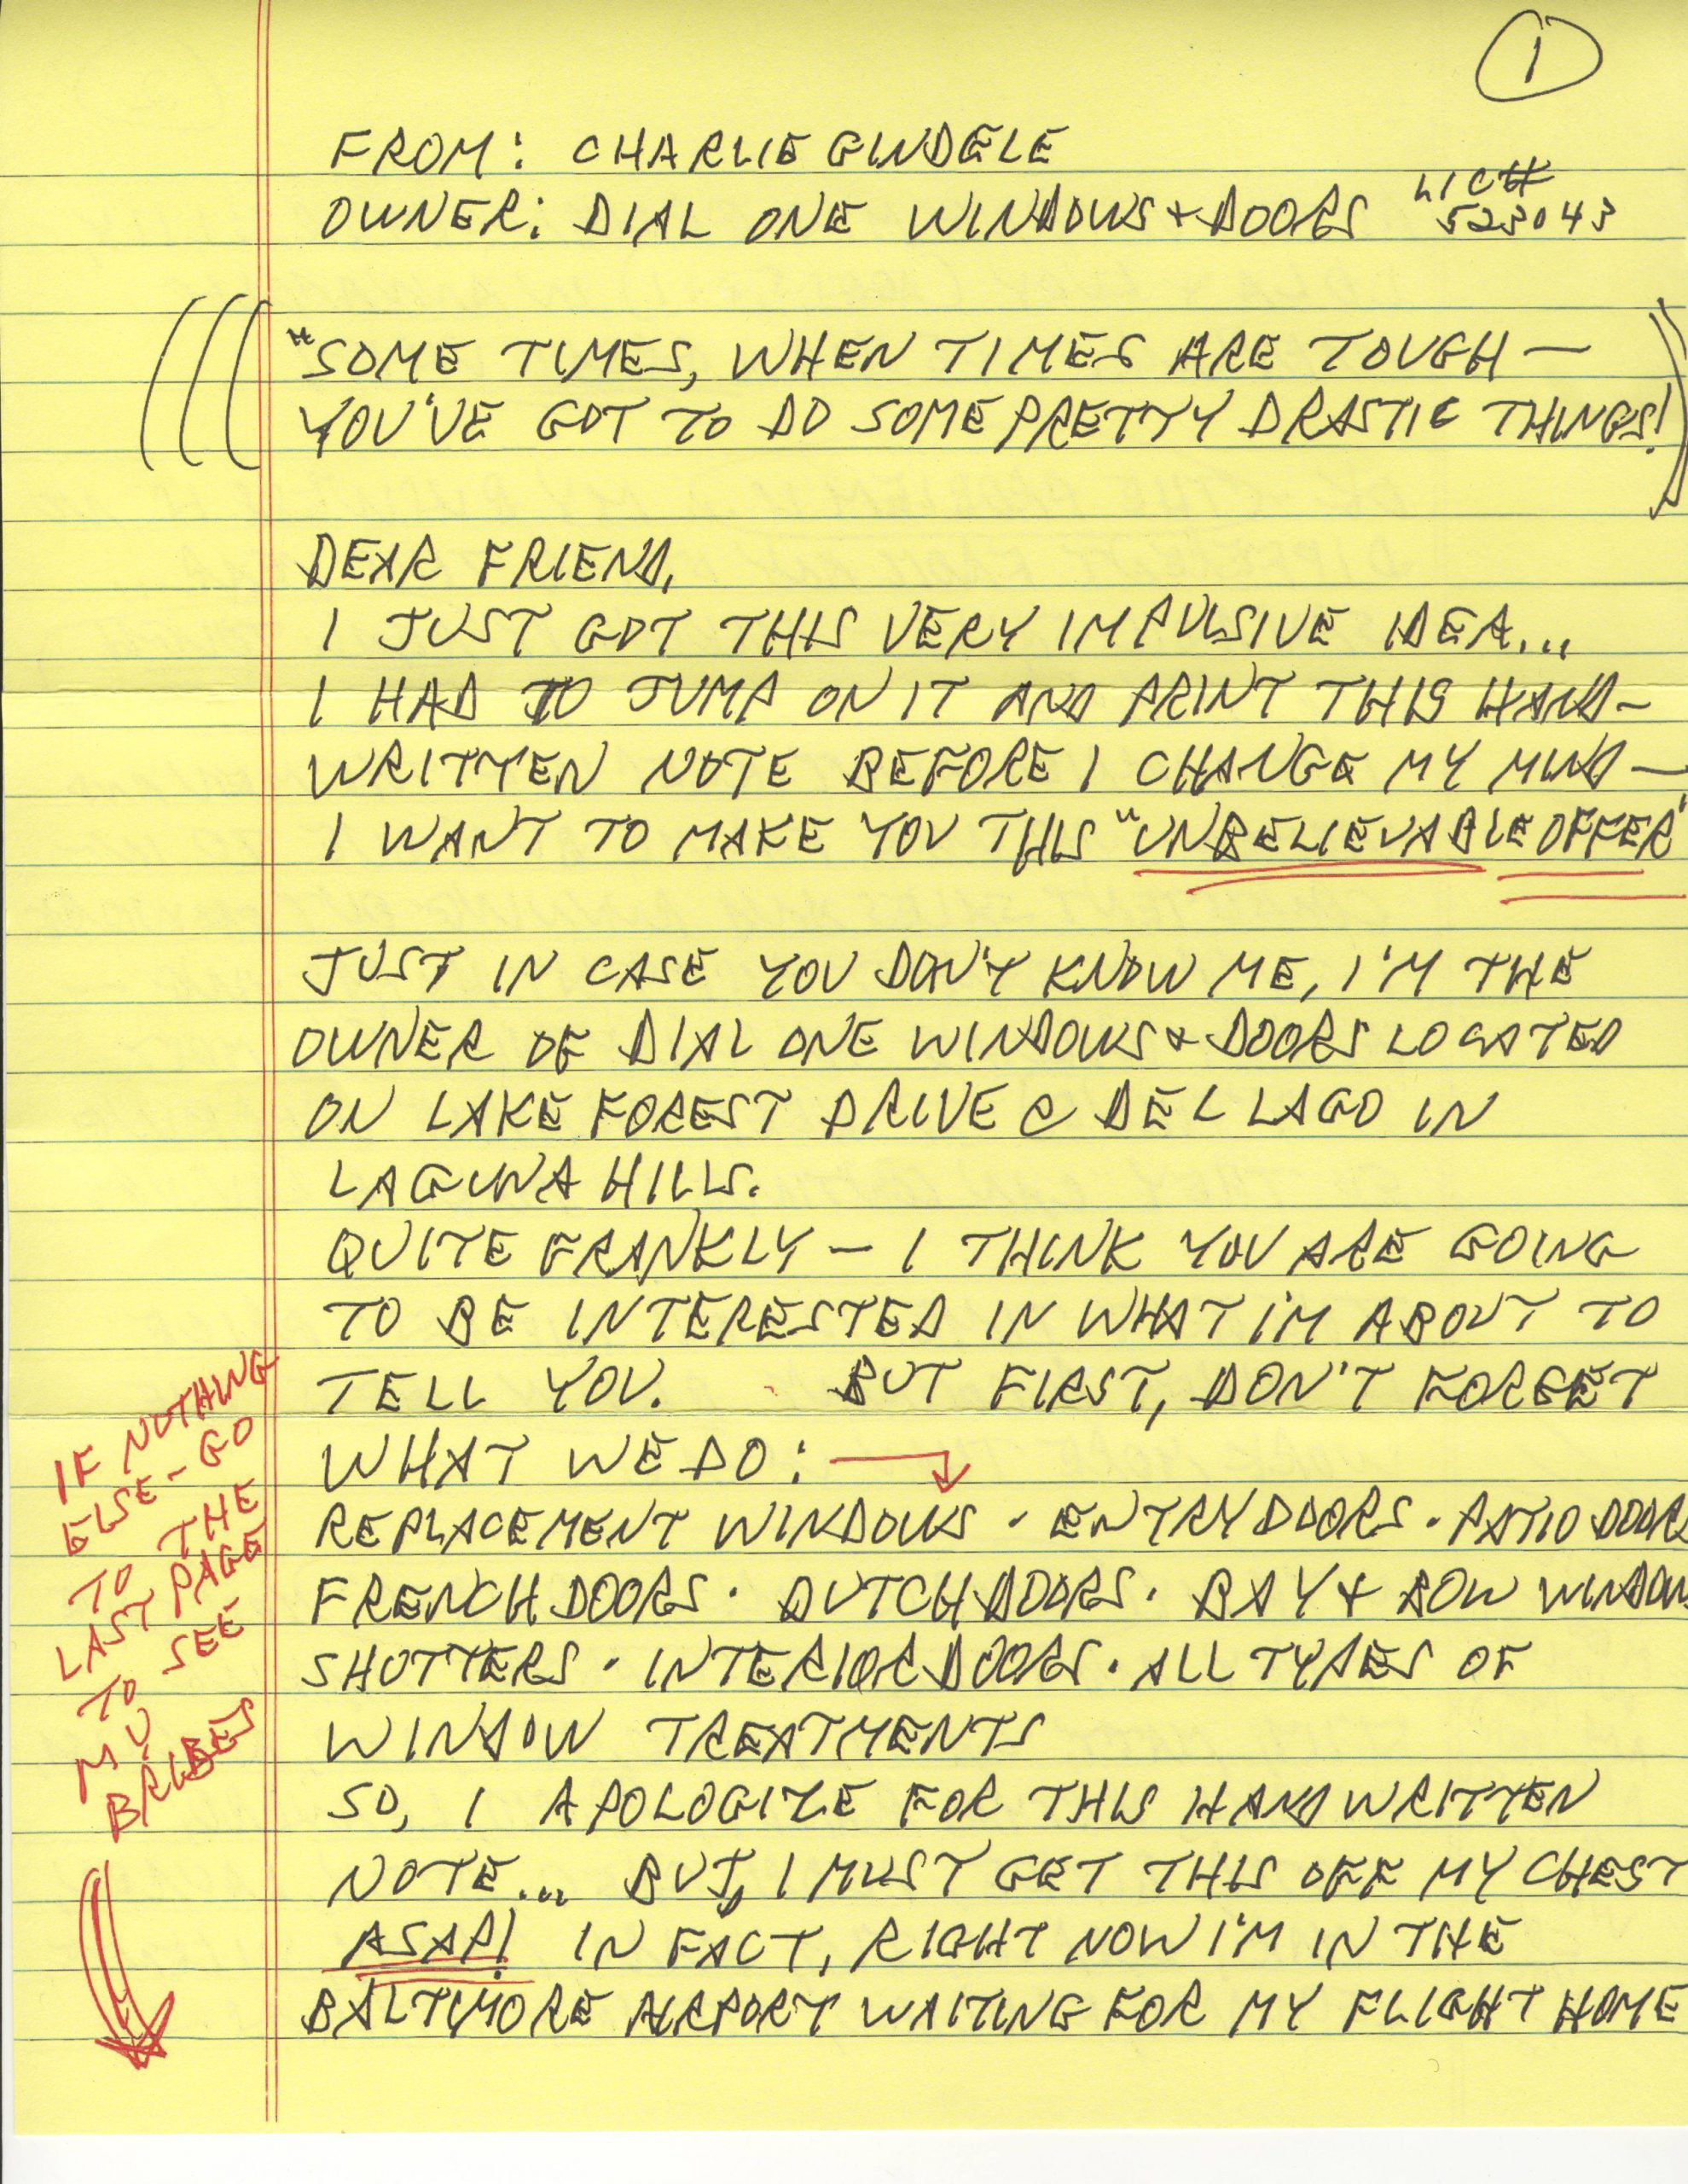 1
FROM: CHARLIE GINDELE
OWNER: DIAL ONE WINDOWS & DOORS LIC# 523043
"SOME TIMES, WHEN TIMES ARE TOUGH —
YOU'VE GOT TO DO SOME PRETTY DRASTIC THINGS!
DEAR FRIEND,
I JUST GOT THIS VERY IMPULSIVE IDEA...
I HAD TO JUMP ON IT AND PRINT THIS HAND-
WRITTEN NOTE BEFORE I CHANGE MY MIND —
I WANT TO MAKE YOU THIS "UNBELIEVABLE OFFER"
JUST IN CASE YOU DON'T KNOW ME, I'M THE
OWNER OF DIAL ONE WINDOWS & DOORS LOCATED
ON LAKE FOREST DRIVE @ DEL LAGO IN
LAGUNA HILLS.
QUITE FRANKLY — I THINK YOU ARE GOING
TO BE INTERESTED IN WHAT I'M ABOUT TO
TELL YOU. BUT FIRST, DON'T FORGET
WHAT WE DO: →
REPLACEMENT WINDOWS · ENTRY DOORS · PATIO DOORS
FRENCH DOORS · DUTCH DOORS · BAY & BOW WINDOW
SHUTTERS · INTERIOR DOORS · ALL TYPES OF
WINDOW TREATMENTS
SO, I APOLOGIZE FOR THIS HAND WRITTEN
NOTE... BUT, I MUST GET THIS OFF MY CHEST
ASAP! IN FACT, RIGHT NOW I'M IN THE
BALTIMORE AIRPORT WAITING FOR MY FLIGHT HOME
IF NOTHING
ELSE - GO
TO THE
LAST PAGE
TO SEE
MY
BRIBES